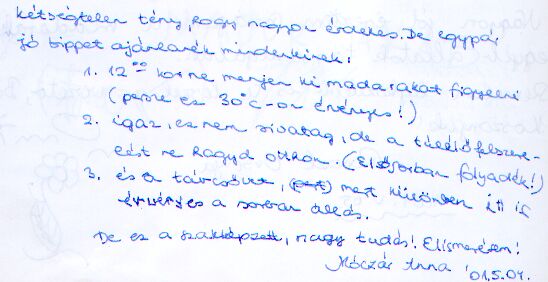 kétségtelen tény, hogy nagyon érdekes. De egypár
jó tippet ajánlanék mindenkinek:
1. 12⁰⁰ körül ne menjen ki madarakat figyelni
(persze ez 30°C-on érvényes!)
2. igaz, ez nem sivatag, de a túlélőfelszere-
lést ne hagyd otthon. (Elsősorban folyadék!)
3. és a távcsövet, mert különben itt is
érvényes a sorban állás.
De ez a szakképzett, nagy tudás! Elismerésem!
Móczár Anna '01.5.04.